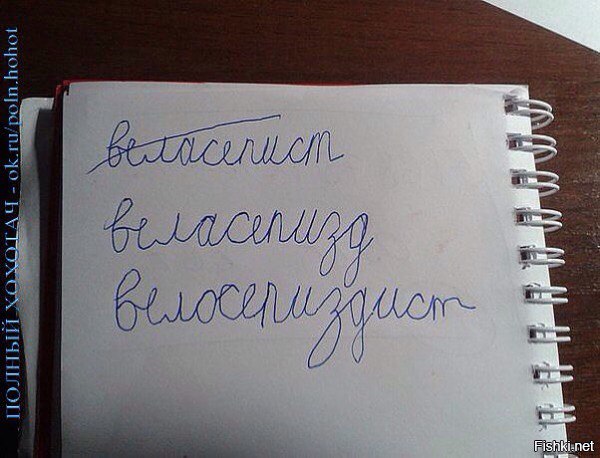 веласепист
веласепизд
велосепиздист
ПОЛНЫЙ ХОХОТАЧ - ok.ru/poln.hohot
Fishki.net